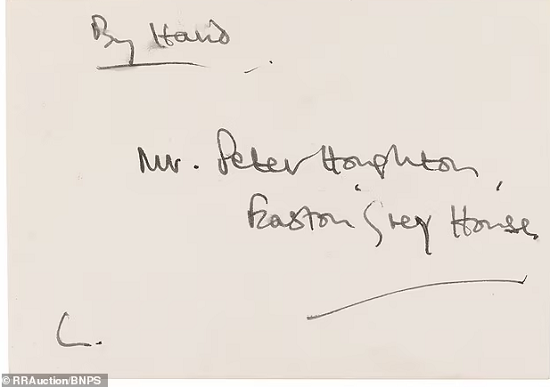 By Hand
Mr. Peter Houghton,
Easton Grey House
C.
© RRAuction/BNPS